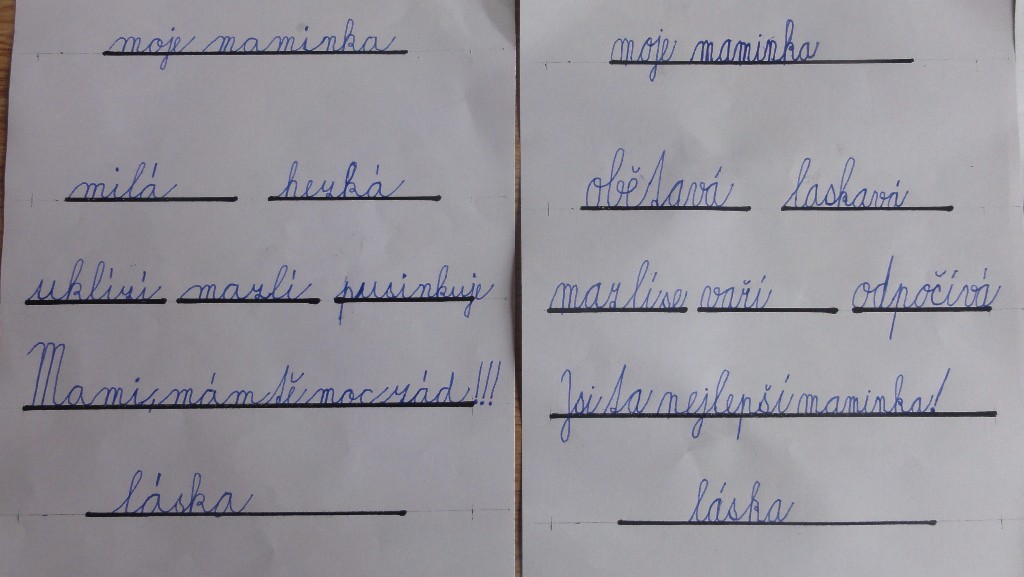 moje maminka
milá hezká
uklízí mazlí pusinkuje
Mami, mám tě moc rád!!!
láska
moje maminka
obětavá laskavá
mazlí se vaří odpočívá
Jsi ta nejlepší maminka!
láska